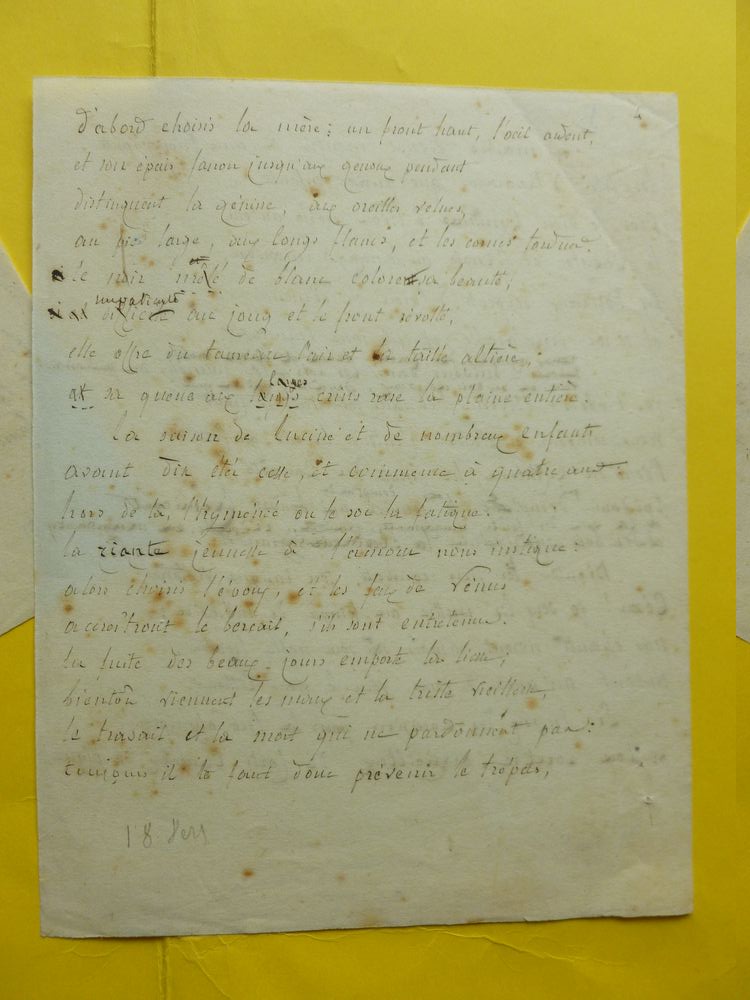 d'abord choisis la mère: un front haut, l'œil ardent,
et son épais fanon jusqu'aux genoux pendant
distinguent la génisse, aux oreilles velues,
au pied large, aux longs flancs, et les cornes tordues.
le noir mêlé de blanc colore sa beauté,
impatiente
au joug et le front révolté,
elle offre du taureau l'air et la taille altière,
larges
et sa queue aux longs crins rase la plaine entière.
la saison de Lucine et de nombreux enfants
avant dix étés cesse, et commence à quatre ans.
hors de là, l'hyménée ou le soc la fatigue.
la riante jeunesse à l'amour nous
alors choisis l'époux, et les feux de Vénus
accroîtront le bercail, s'ils sont entretenus.
la fuite des beaux jours emporte la liesse;
bientôt viennent les maux et la triste vieillesse,
le travail et la mort qui ne pardonnent pas:
toujours il te faut donc prévenir le trépas,
18 Vers